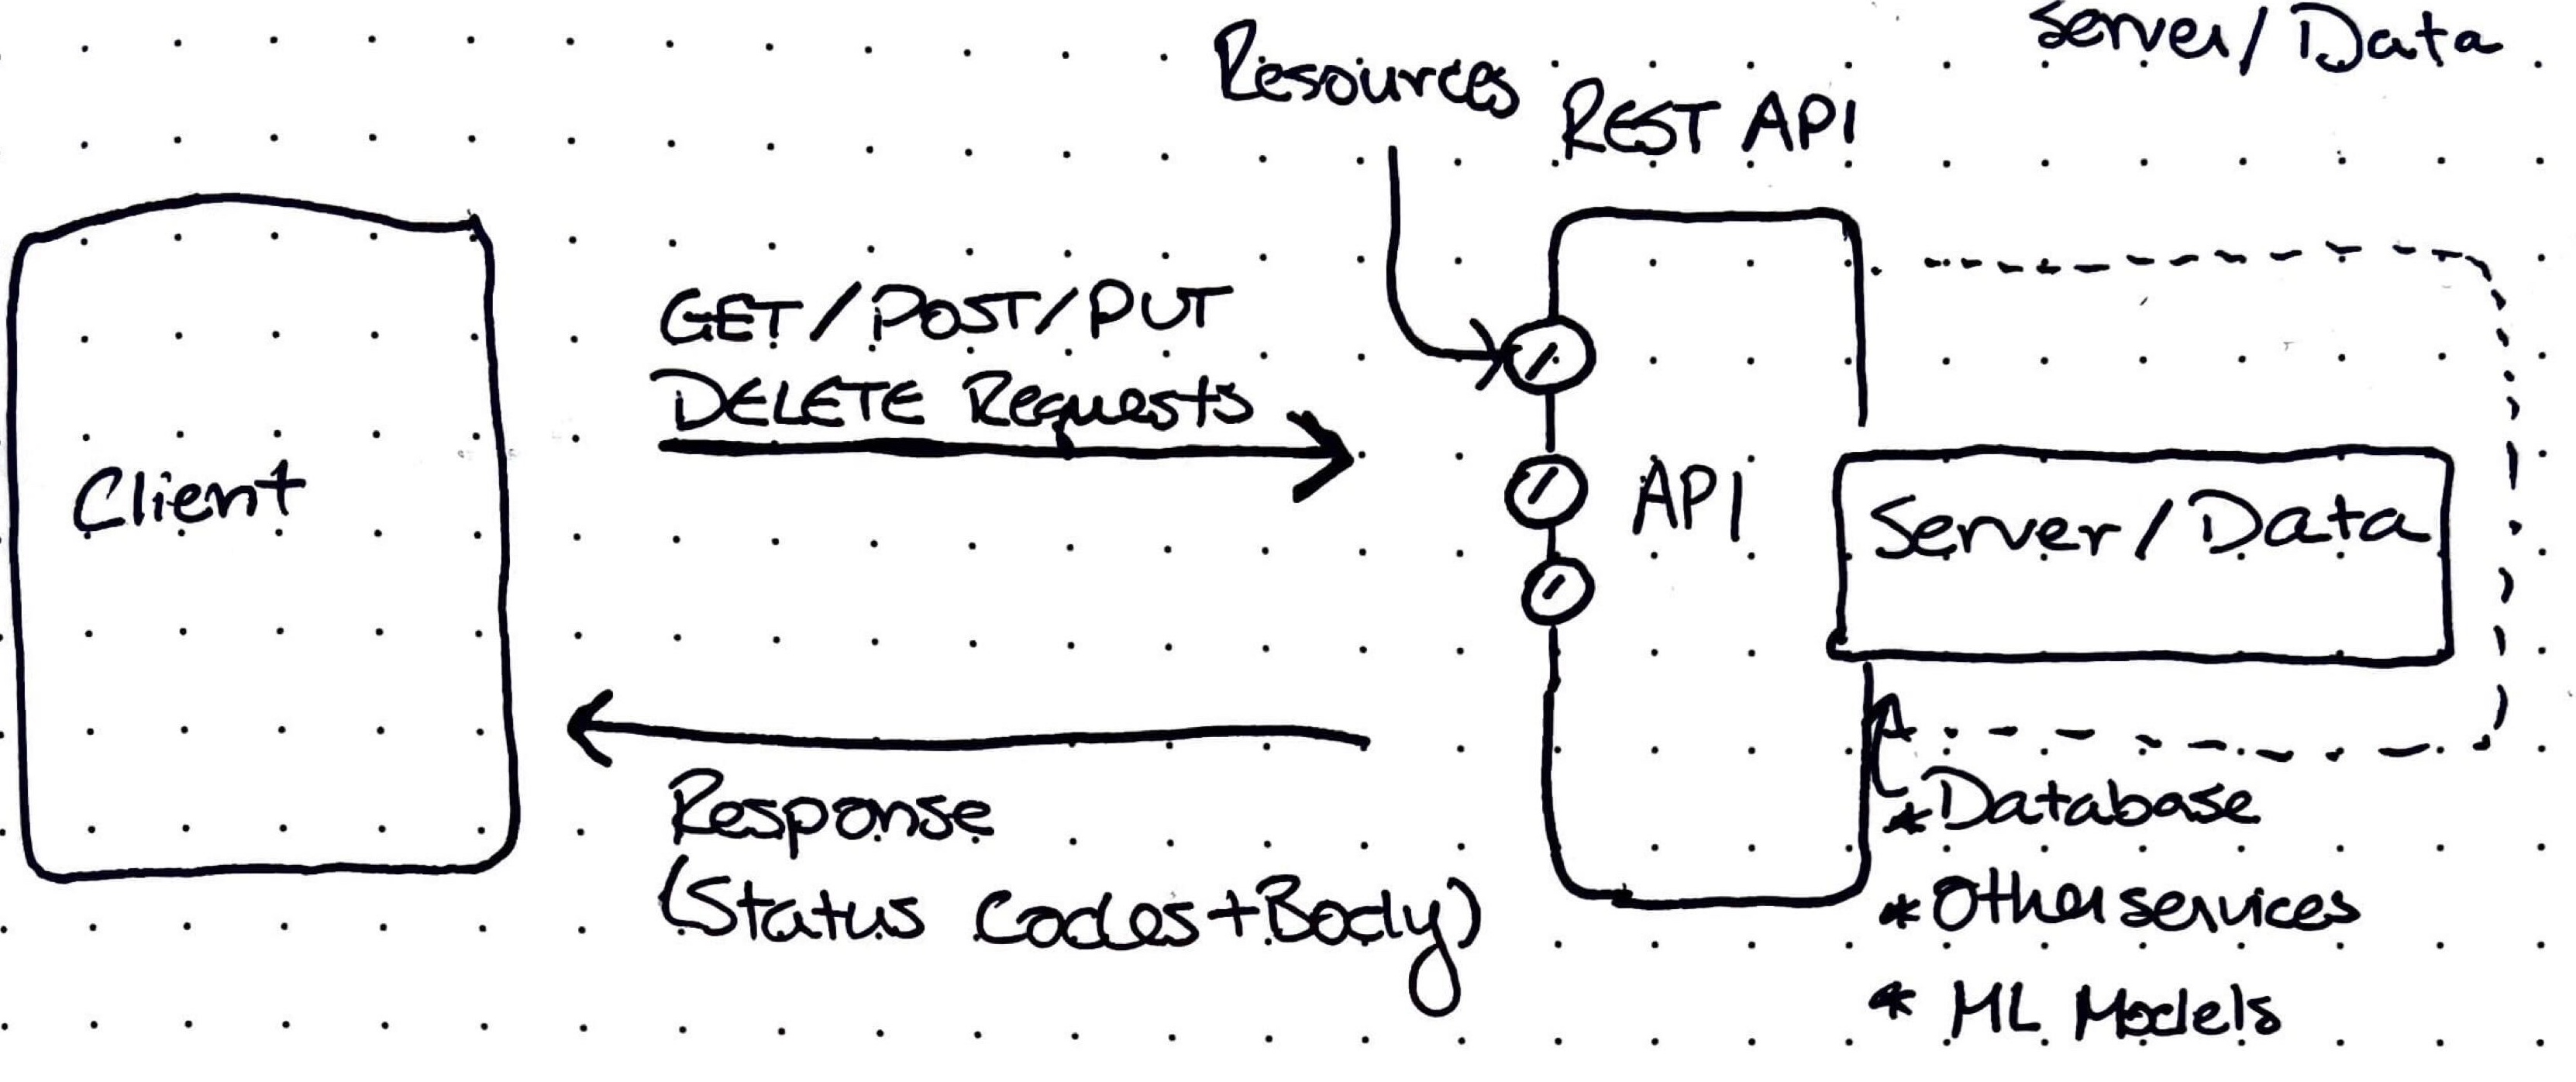 Server/Data
Resources
REST API
GET/POST/PUT
DELETE Requests
Client
API
Server/Data
Response
(Status Codes+Body)
*Database
*Other services
* ML Models